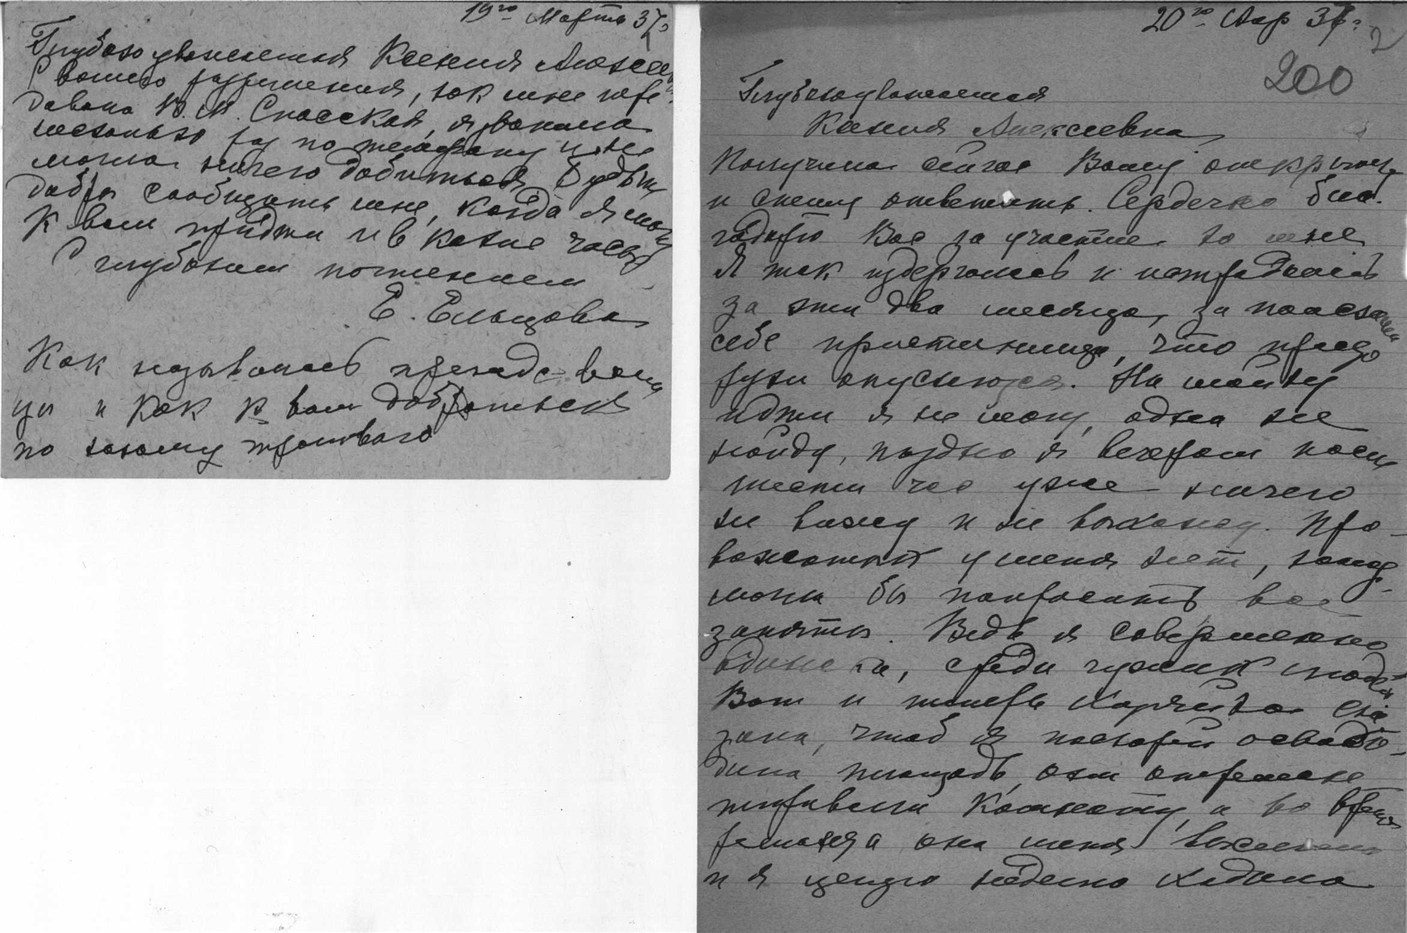 19го Марта 37г.
Глубокоуважаемая Ксения Алексеев
С вашего разрешения, как мне пере
давала В. М. Спасская, я звонила
несколько раз по телефону и не
могла ничего добиться. Будьте
добры сообщить мне, когда я могу
к вам прийти и в какие часы
С глубоким почтением
Е. Ельцова
Как называлась
и как к вам добраться
по
20го Апр 37г.
2
200
Глубокоуважаемая
Ксения Алексеевна,
Получила сейчас Вашу открытку
и спешу ответить. Сердечно бла-
годарю Вас за участие ко мне
Я так издергалась и исстрадалась
за эти два месяца, за поиски
себе пристанища, что прямо
руки опускаются. На
идти я не могу, одна не
найду, поздно я вечером после
шести час уже ничего
не вижу и не выхожу. Про-
вожатых у меня нет, кого
можно бы попросить все
заняты. Ведь я совершенно
одинока, среди чужих людей
Вот и теперь хозяйка ска
зала, чтоб я поскорей освобо-
дила площадь, они
комнату, а во время
ремонта она меня
и я целую неделю ходила